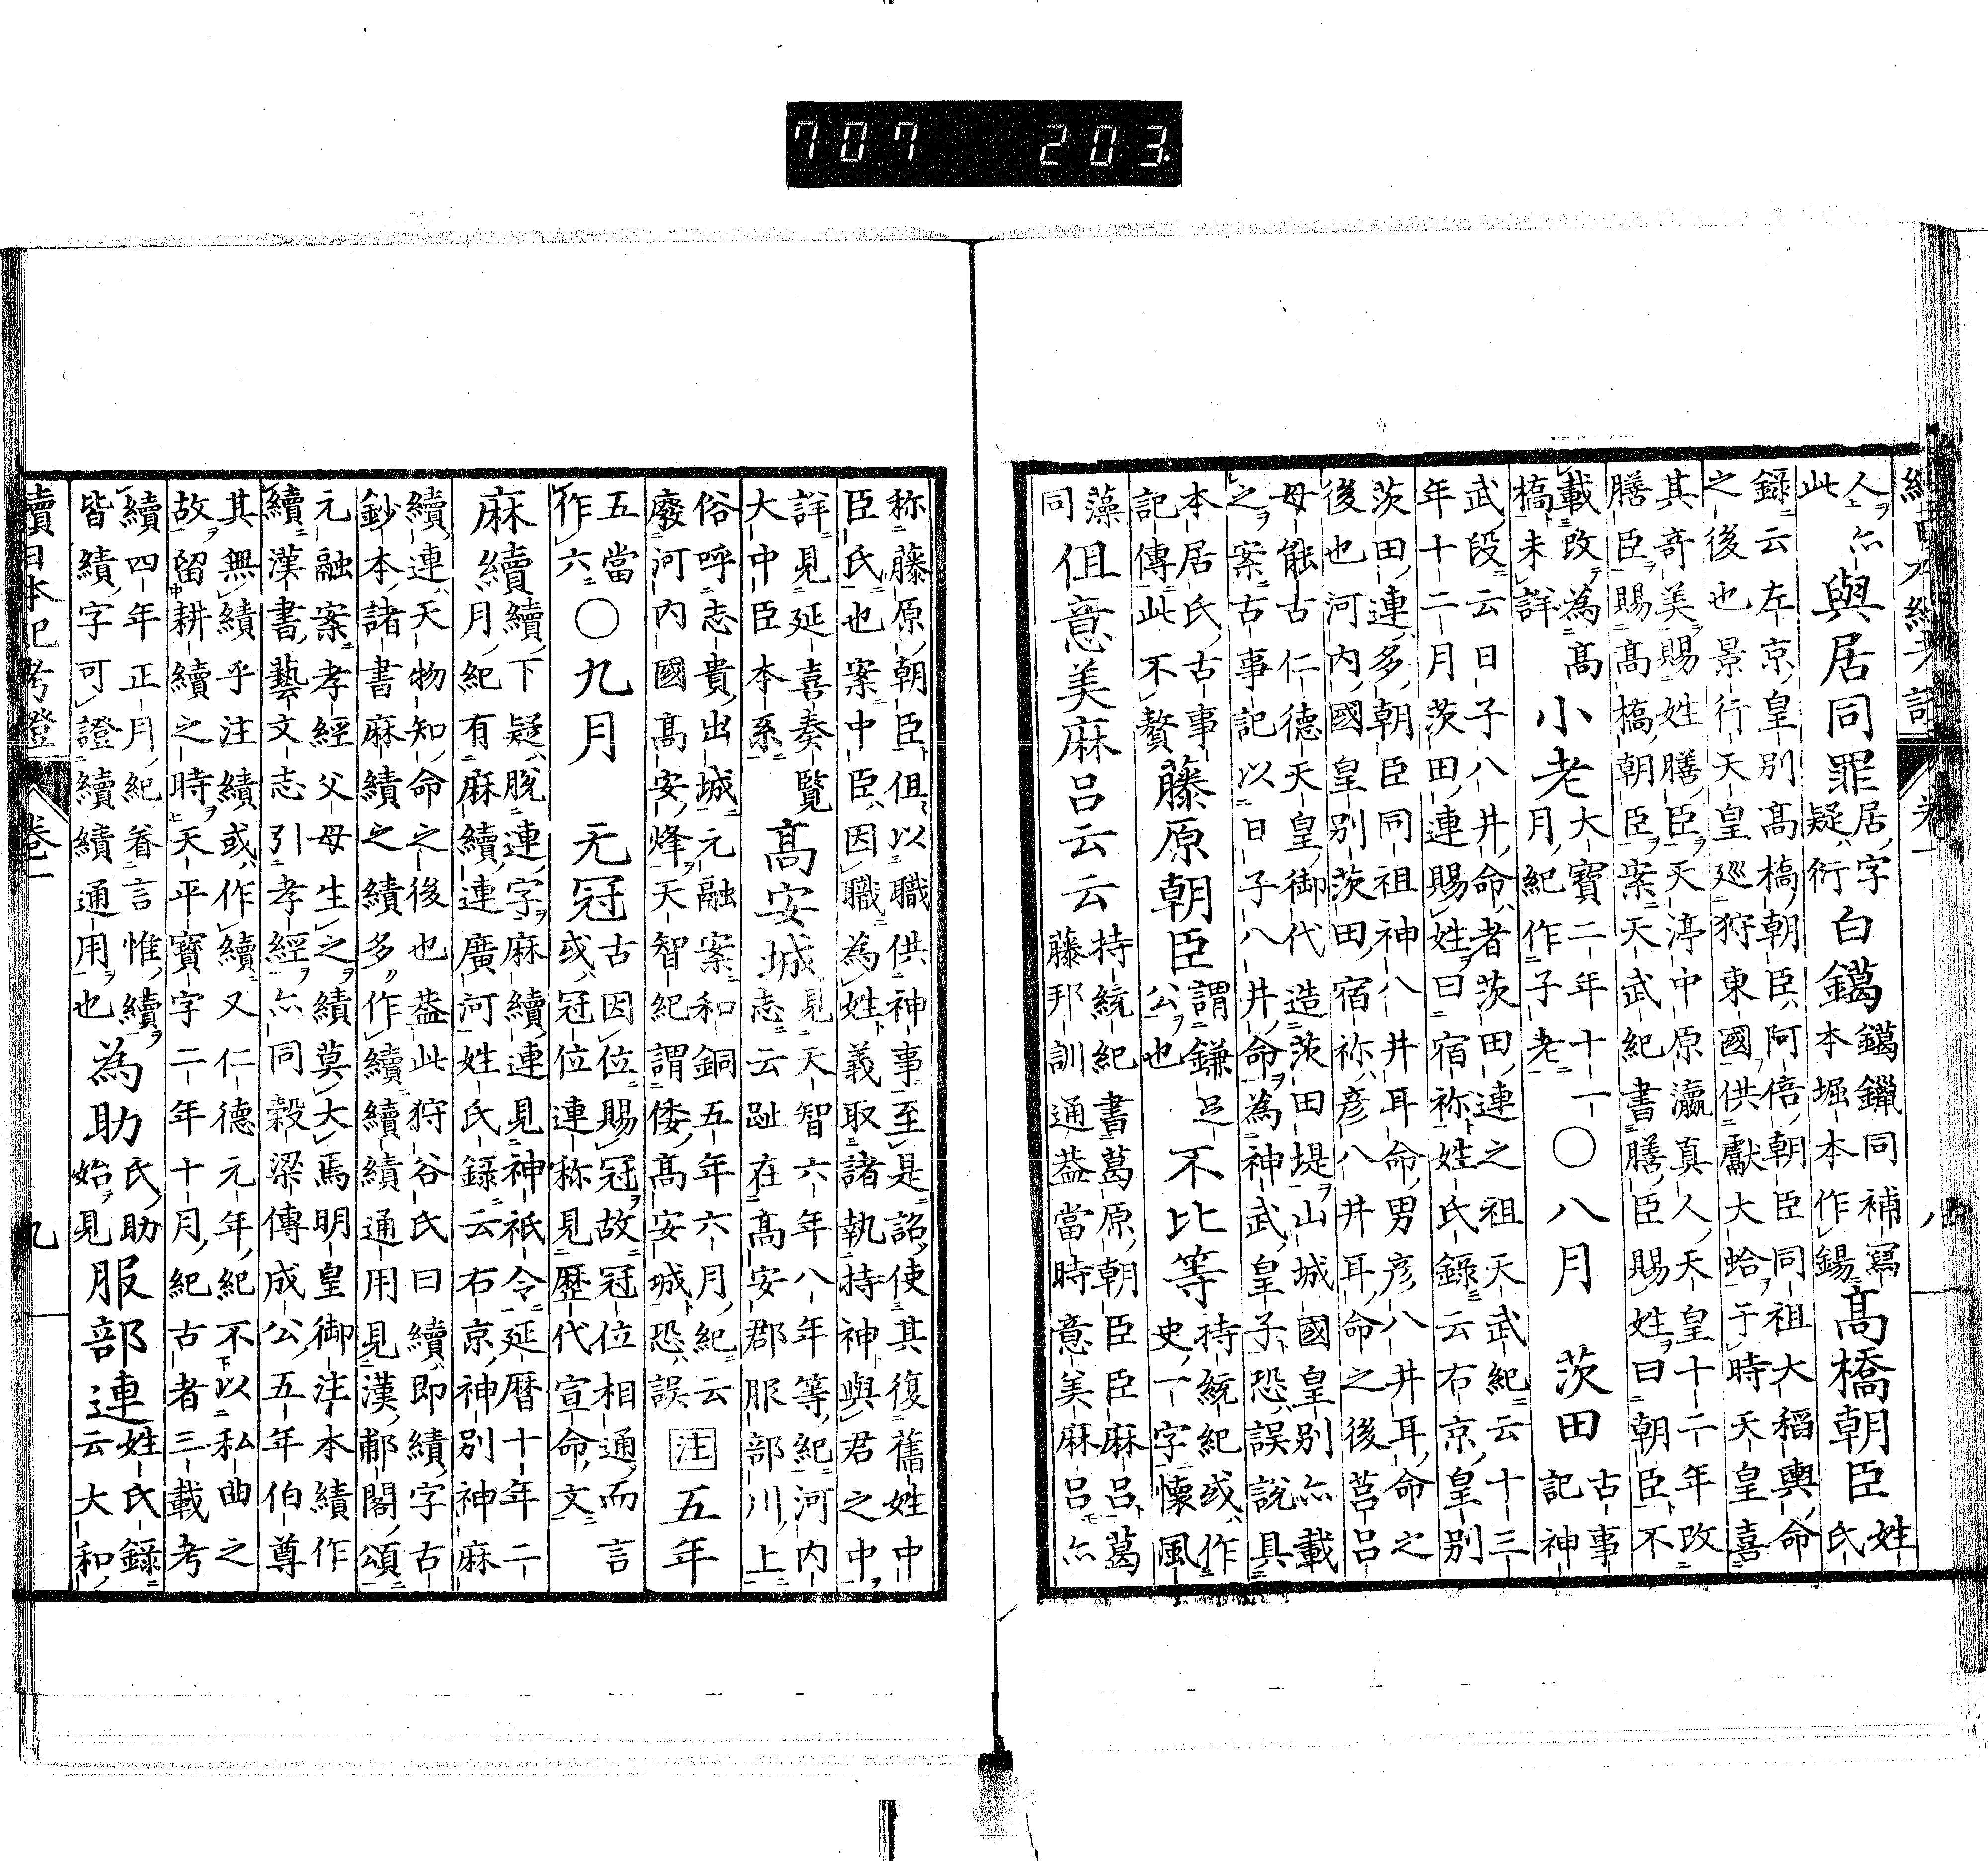 人亦
此
與居同罪
居字
疑衍
白鑞
鑞鑞同補寫
本堀本作錫
高橋朝臣
姓
氏
錄云左京皇別高橋朝臣阿倍朝臣同祖大稻輿命
之後也景行天皇巡狩東國供獻大蛤于時天皇喜
其奇美賜姓膳臣天渟中原瀛真人天皇十二年改
膳臣賜高橋朝臣案天武紀書膳臣賜姓曰朝臣不
載改為高
橋未詳
小老
大寶二年十一
月紀作子老
○八月　茨田
古事
記神
武段云日子八井命者茨田連之祖天武紀云十三
年十二月茨田連賜姓曰宿祢姓氏錄云右京皇別
茨田連多朝臣同祖神八井耳命男彦八井耳命之
後也河内國皇別茨田宿祢彦八井耳命之後莒呂
母能古仁德天皇御代造茨田堤山城國皇別亦載
之案古事記以日子八井命為神武皇子恐誤説具
本居氏古事
記傳此不贅
藤原朝臣
謂鎌足
公也
不比等
持統紀或作
史一字懷風
藻
同
伹意美麻呂云云
持統紀書葛原朝臣臣麻呂葛
藤邦訓通葢當時意美麻呂亦
称藤原朝臣伹以職供神事至是詔使其復舊姓中
臣氏也案中臣因職為姓義取諸執持神與君之中
詳見延喜奏覧
大中臣本系
高安城
見天智六年八年等紀河内
志云趾在高安郡服部川上
俗呼志貴出城元融案和銅五年六月紀云
廢河内國高安烽天智紀謂倭高安城恐誤
注 五年
五當
作六
○九月　无冠
古因位賜冠故冠位相通而言
或冠位連称見歷代宣命文
麻續
續下疑脱連字麻續連見神祇令延暦十年二
月紀有麻續連廣河姓氏錄云右京神別神麻
續連天物知命之後也葢此狩谷氏曰續即績字古
鈔本諸書麻績之績多作續續績通用見漢郙閣頌
元融案孝經父母生之績莫大焉明皇御注本績作
續漢書藝文志引孝經亦同穀梁傳成公五年伯尊
其無績乎注績或作續又仁德元年紀不以私曲之
故留耕績之時天平寶字二年十月紀古者三載考
續四年正月紀眷言惟續
皆績字可證續績通用也
為助
氏助
始見
服部連
姓氏錄
云大和
續日本紀考證　卷一　九